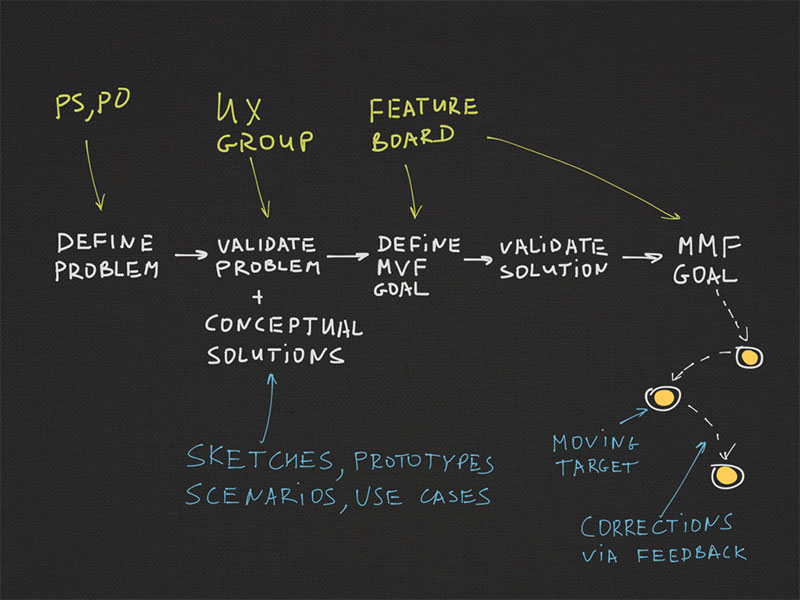 PS, PO
UX
GROUP
FEATURE
BOARD
DEFINE
PROBLEM
VALIDATE
PROBLEM
+
CONCEPTUAL
SOLUTIONS
DEFINE
MVF
GOAL
VALIDATE
SOLUTION
MMF
GOAL
SKETCHES, PROTOTYPES
SCENARIOS, USE CASES
MOVING
TARGET
CORRECTIONS
VIA FEEDBACK